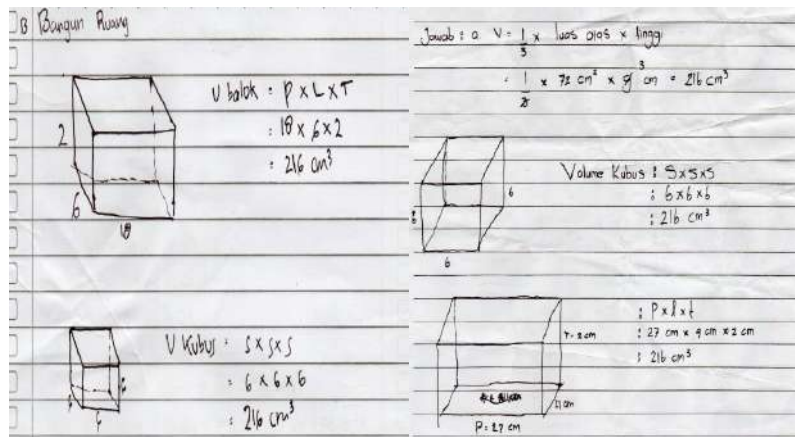 B Bangun Ruang
2
6
18
V balok = P x L x T
: 18 x 6 x 2
: 216 cm³
6
6
6
V Kubus : S x S x S
: 6 x 6 x 6
: 216 cm³
Jawab : a V = 1/3 x luas alas x tinggi
= 1/3 x 72 cm² x 9 3 cm = 216 cm³
6
6
6
Volume Kubus : S x S x S
: 6 x 6 x 6
: 216 cm³
T = 2 cm
P = 27 cm
: P x l x t
: 27 cm x 4 cm x 2 cm
: 216 cm³